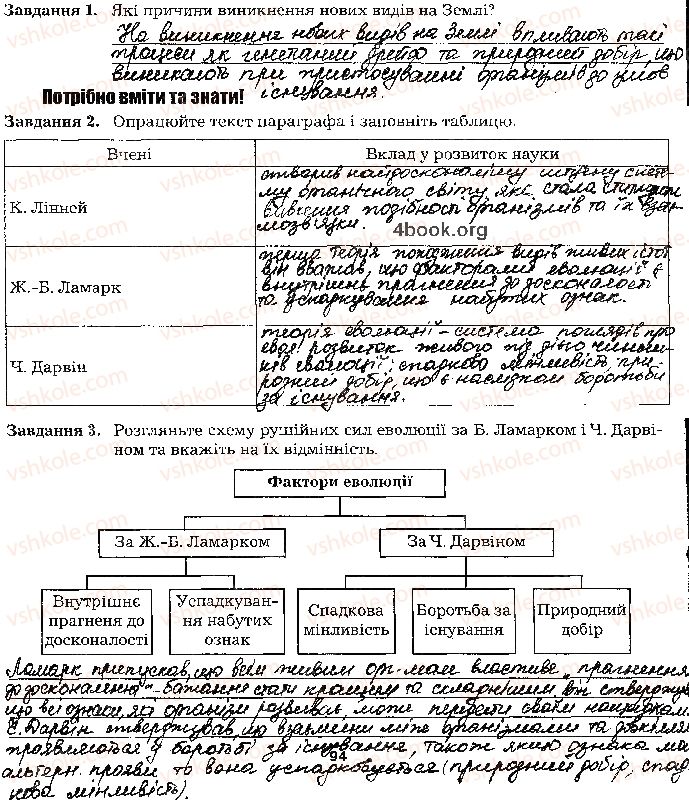 Завдання 1. Які причини виникнення нових видів на Землі?
На виникнення нових видів на Землі впливають такі
процеси як генетичний дрейф та природний добір, що
виникають при пристосуванні організмів до умов
Потрібно вміти та знати! існування.
Завдання 2. Опрацюйте текст параграфа і заповніть таблицю.
Вчені Вклад у розвиток науки
К. Лінней
створив найдосконалішу штучну систе-
му органічного світу яка стала стимулом
вивчення подібності організмів та їх взає-
мозв'язки.
4book.org
Ж.-Б. Ламарк
перша теорія походження видів живих істот
він вважав, що факторами еволюції є
внутрішнє прагнення до досконалості
та успадкування набутих ознак.
Ч. Дарвін
теорія еволюції - система поглядів про
розвиток живого під дією чинни-
ків еволюції; спадкова мінливість, при-
родний добір, що є наслідком боротьби
за існування.
Завдання 3. Розгляньте схему рушійних сил еволюції за Б. Ламарком і Ч. Дарві-
ном та вкажіть на їх відмінність.
Фактори еволюції
За Ж.-Б. Ламарком За Ч. Дарвіном
Внутрішнє
прагненя до
досконалості
Успадкуван-
ня набутих
ознак
Спадкова
мінливість
Боротьба за
існування
Природний
добір
Ламарк припускав, що всім живим ор-мам властиве "прагнення
до досконалення" - бажання стати кращими та складнішим. він стверджує
що всі ознаки, які організм розвивав може передати своїм нащадкам.
Ч. Дарвін стверджував, що взаємини між організмами та довкіллям
проявляються у боротьбі за існування, також якщо ознака ма
альтерн. прояви то вона успадковується (природний добір, спад-
кова мінливість).
94